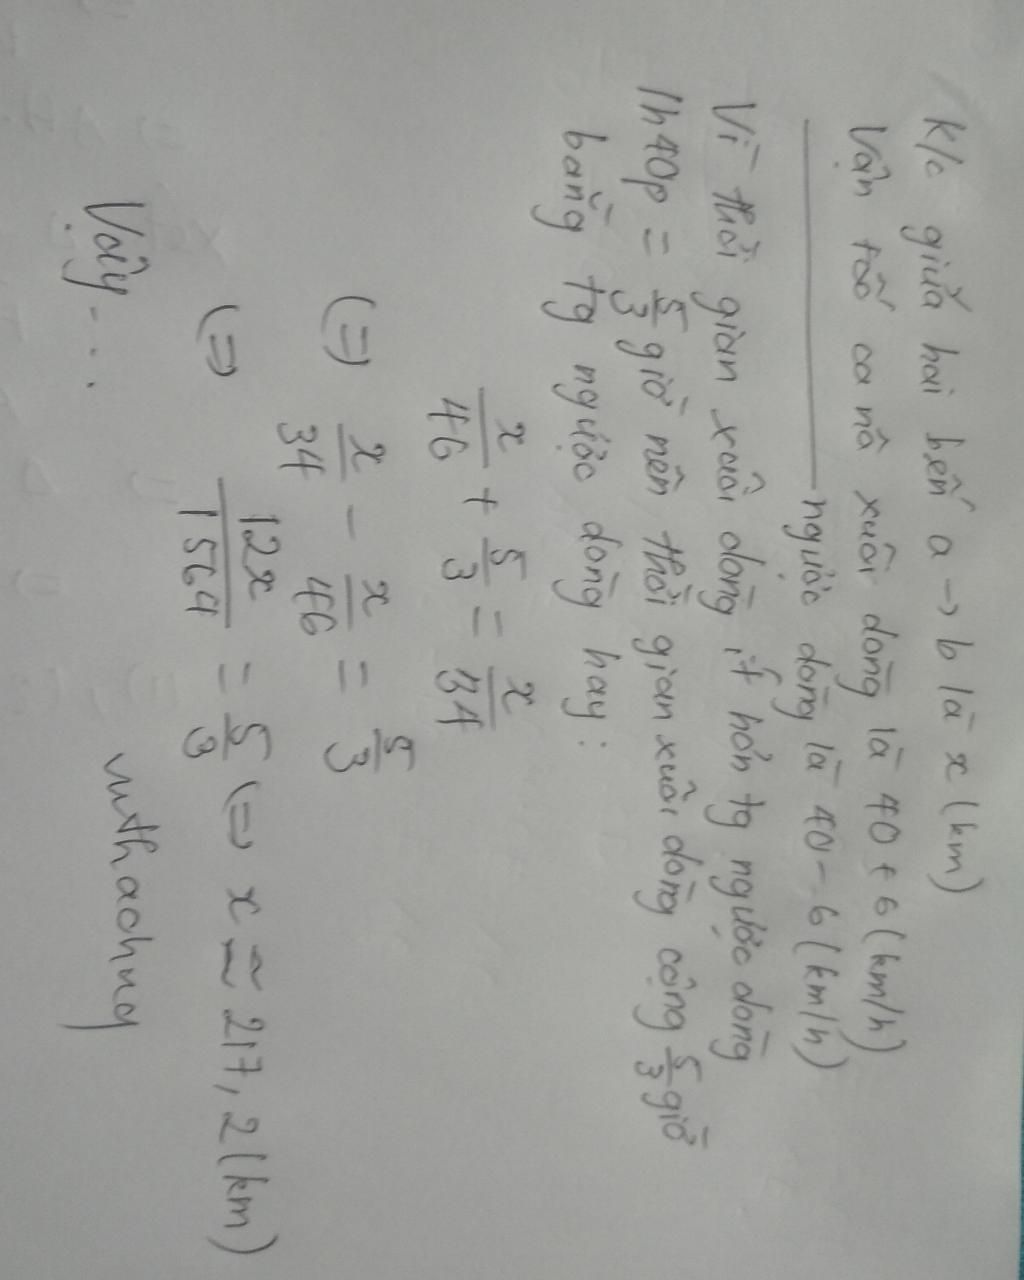 K/c giữa hai bến a → b là x (km)
Vận tốc ca nô xuôi dòng là 40 + 6 (km/h)
ngược dòng là 40 - 6 (km/h)
Vì thời gian xuôi dòng ít hơn tg ngược dòng
1h40p = 5/3 giờ nên thời gian xuôi dòng cộng 5/3 giờ
bằng tg ngược dòng hay:
x/46 + 5/3 = x/34
(=) x/34 - x/46 = 5/3
(=) 12x/1564 = 5/3 (=) x ≈ 217,2 (km)
Vậy...